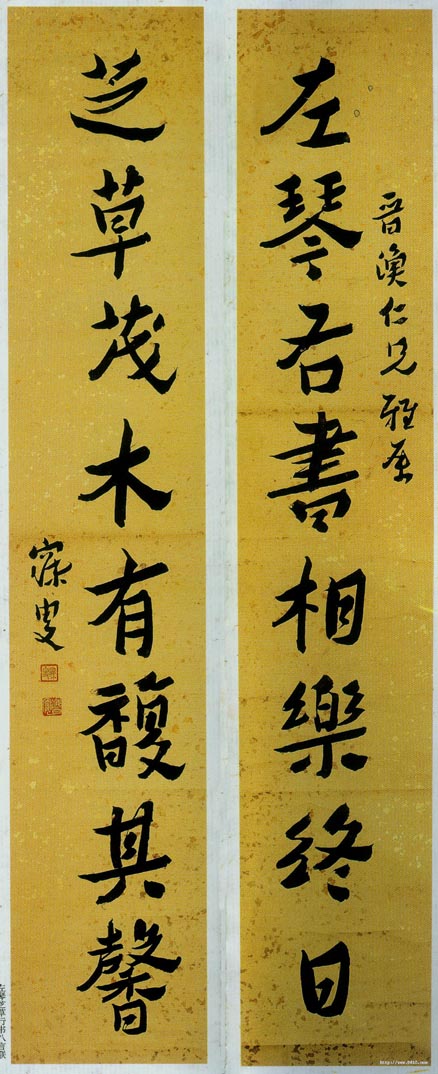 晉渙仁兄雅屬
左琴右書相樂終日
芝草茂木有馥其馨
寐叟
http://www.9610.com